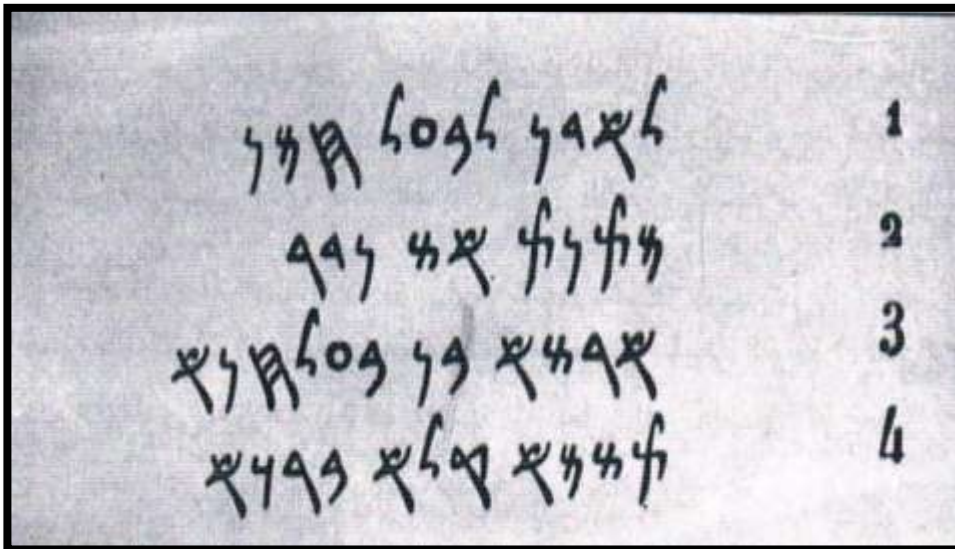 𐤋𐤀𐤃𐤍 𐤋𐤁𐤏𐤋 𐤇𐤌𐤍 1
𐤌𐤕𐤍𐤕 𐤀𐤔 𐤍𐤃𐤓 2
𐤀𐤓𐤔𐤀 𐤁𐤍 𐤁𐤏𐤋𐤇𐤍𐤀 3
𐤕𐤔𐤌𐤀 𐤒𐤋𐤀 𐤁𐤓𐤊𐤀 4